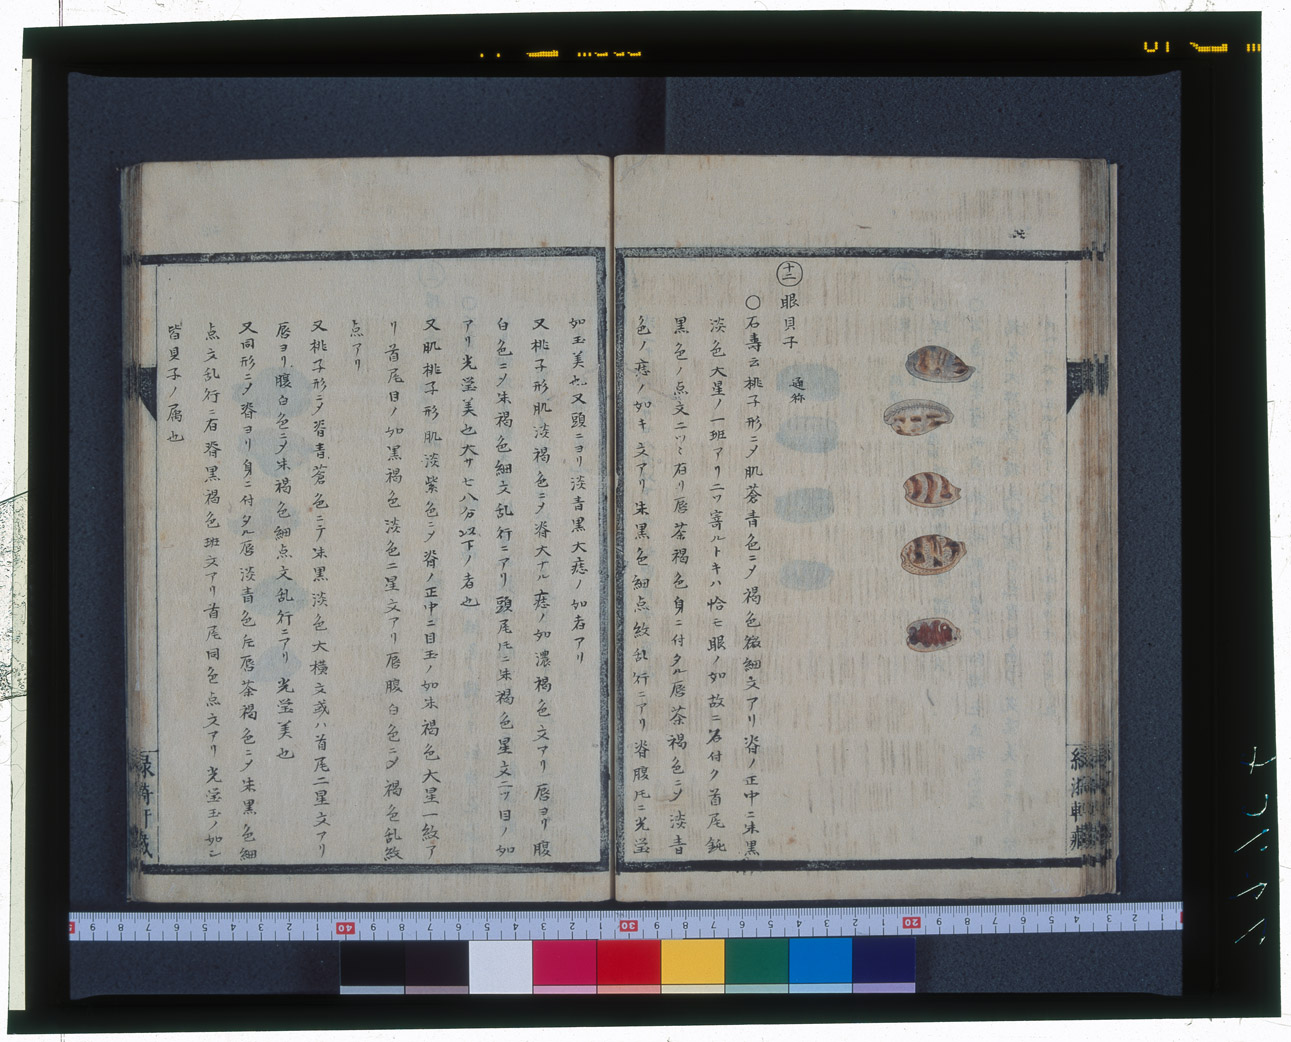 十二 眼貝子 通称
〇石壽云桃子形ニ〆肌蒼青色ニ〆褐色微細文アリ脊ノ正中ニ朱黒
淡色大星ノ一班アリ二ツ寄ルトキハ恰モ眼ノ如故ニ名付ク首尾鈍
黒色ノ点文二ツヽ有リ唇茶褐色身ニ付タル唇茶褐色ニ〆淡青
色ノ痣ノ如キ文アリ朱黒色細点紋乱行ニアリ脊腹圧ニ光瑩
如玉美也又頭ニヨリ淡青黒大痣ノ如者アリ
又桃子形肌淡褐色ニ〆脊大ナル痣ノ如濃褐色文アリ唇ヨリ腹
白色ニ〆朱褐色細文乱行ニアリ頭尾圧ニ朱褐色星文二ツ目ノ如
アリ光瑩美也大サ七八分以下ノ者也
又肌桃子形肌淡紫色ニ〆脊ノ正中ニ目玉ノ如朱褐色大星一紋ア
リ首尾目ノ如黒褐色淡色ニ星文アリ唇腹白色ニ〆褐色乱紋
点アリ
又桃子形ニ〆脊青蒼色ニテ朱黒淡色大横文或ハ首尾二星文アリ
唇ヨリ腹白色ニ〆朱褐色細点文乱行ニアリ光瑩美也
又同形ニ〆脊ヨリ身ニ付タル唇淡青色左唇茶褐色ニ〆朱黒色細
点文乱行ニ有脊黒褐色班文アリ首尾同色点文アリ光瑩玉ノ如シ
皆貝子ノ属也
軒蔵